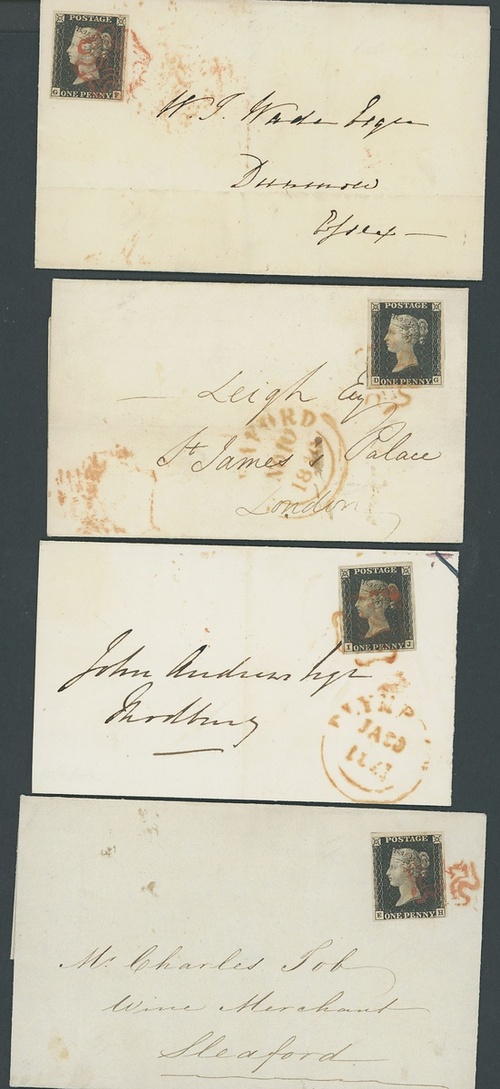 POSTAGE
G F
ONE PENNY
W. J. Wade Esqre
Dunmow
Essex
POSTAGE
D G
ONE PENNY
Leigh Esq
St James's Palace
London
NO 10
POSTAGE
I J
ONE PENNY
John Andrews Esqr
Modbury
PLYMP
JA 29
POSTAGE
E H
ONE PENNY
Mr. Charles Job
Wine Merchant
Sleaford